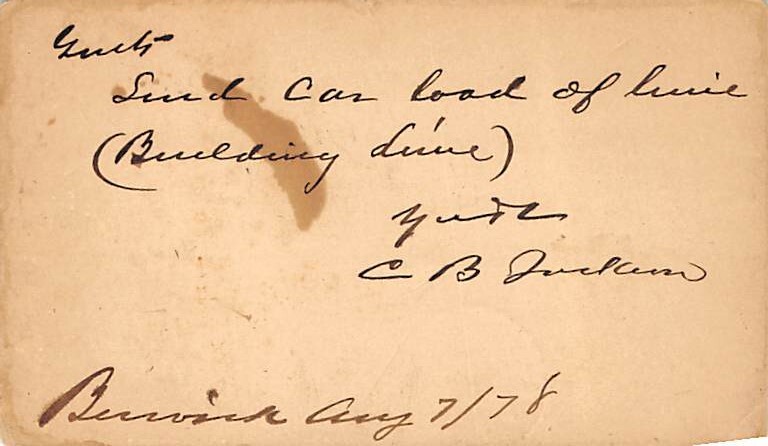 Gents
Send Car load of lime
(Building Lime)
Yours
C B Jackson
Berwick Aug 7/78